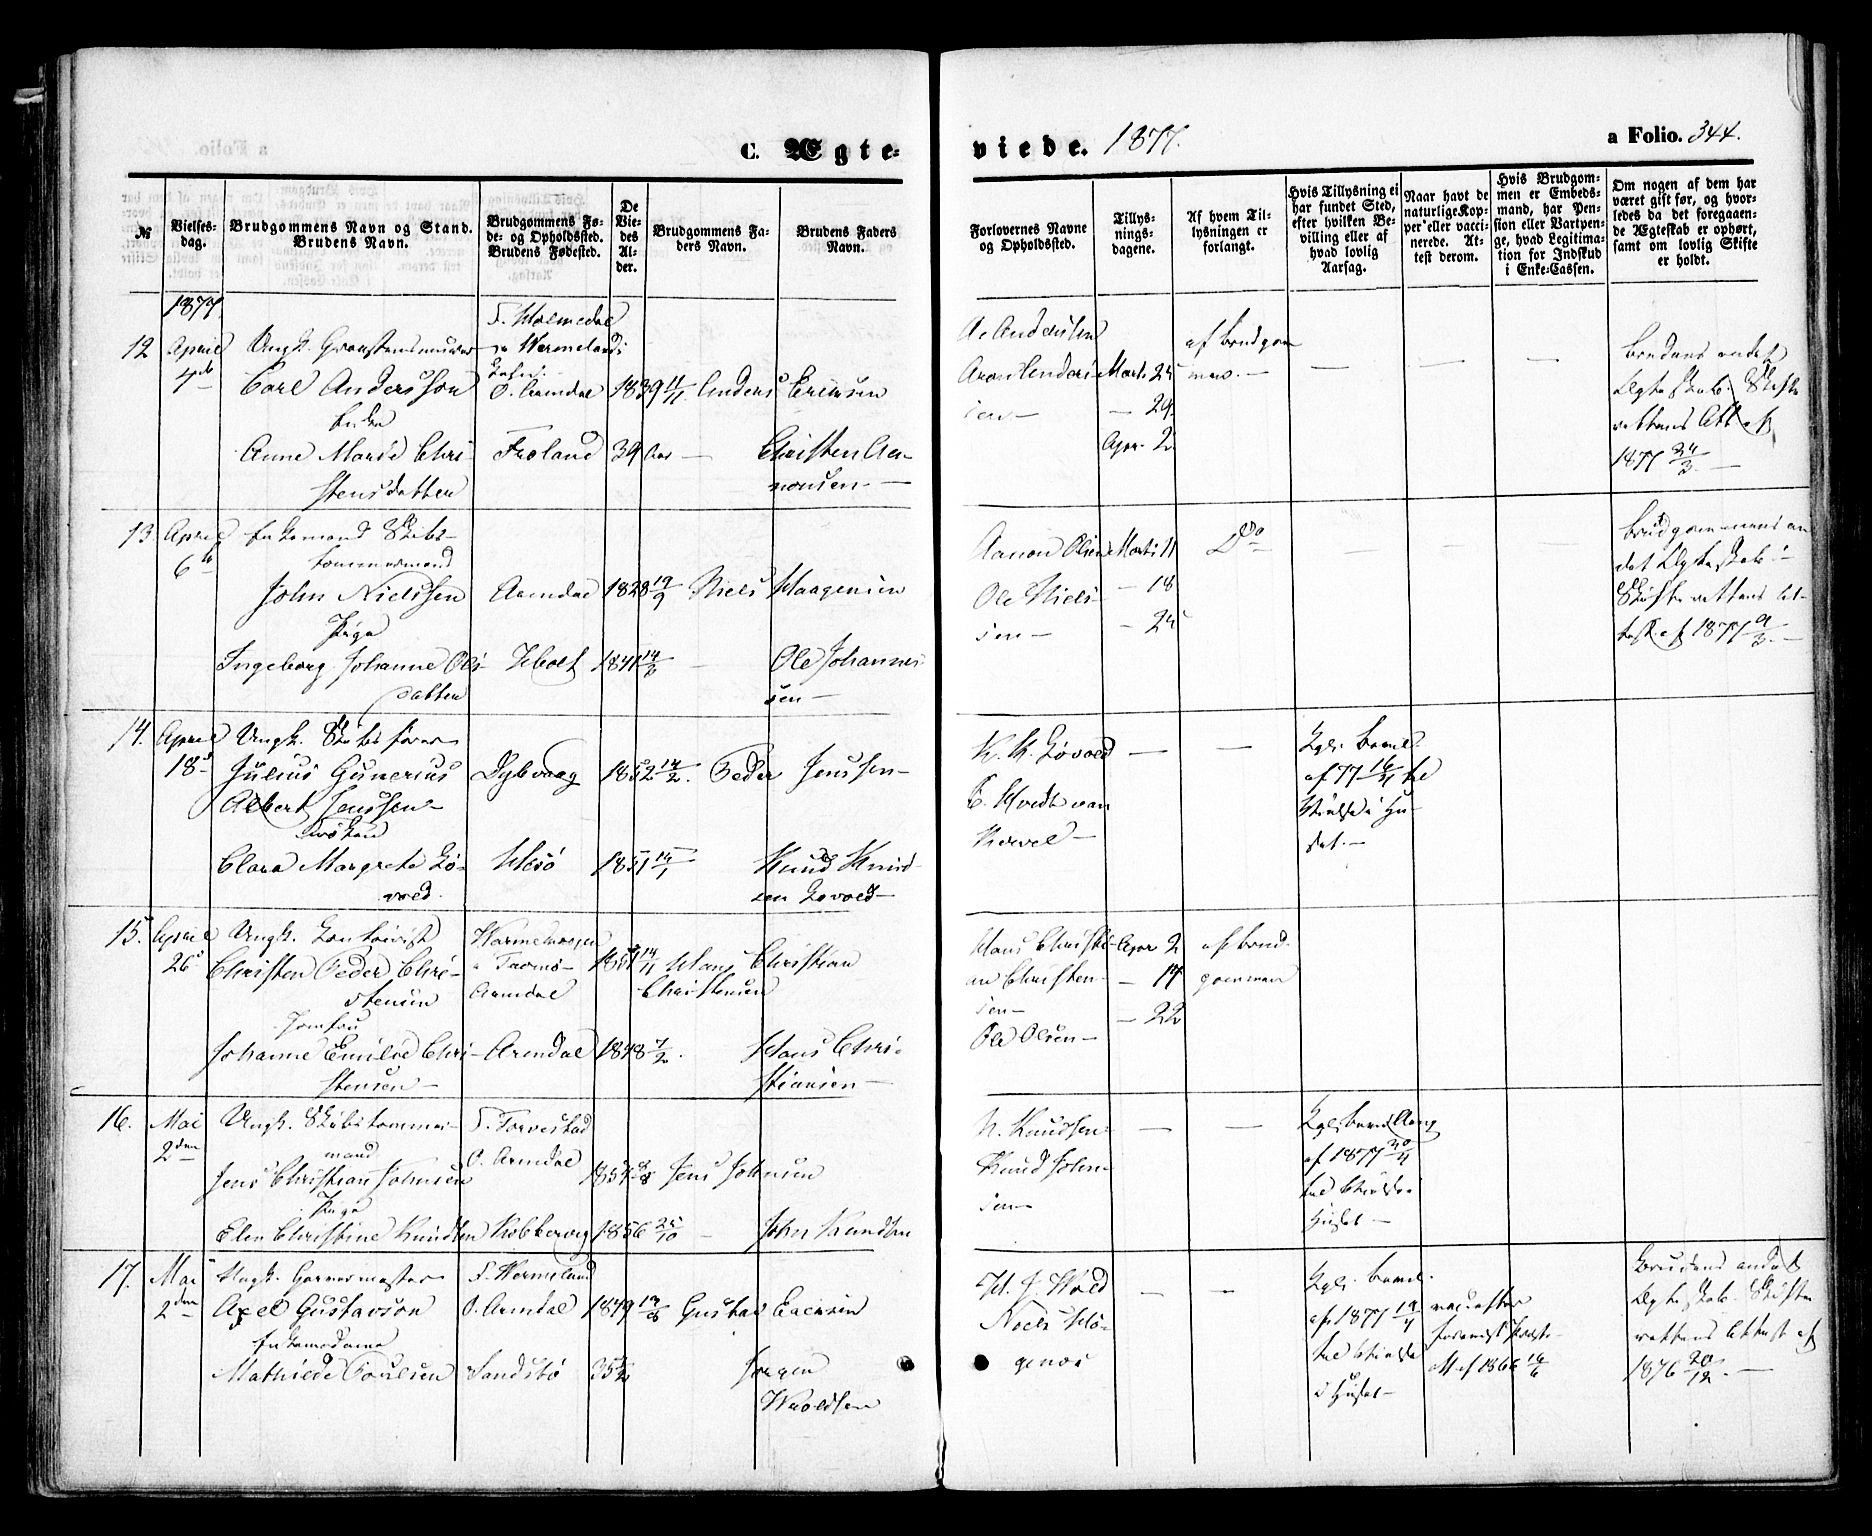 C. Ægte-
viede. 1877.
a Folio. 344.
№
Vielses-
dag.
Brudgommens Navn og Stand.
Brudens Navn.
Brudgommens Fø-
de- og Opholdssted.
Brudens Fødested.
De
Vie-
des
Al-
der.
Brudgommens Fa-
ders Navn.
Brudens Faders
Navn.
Forlovernes Navne
og Opholdssted.
Tillys-
nings-
dagene.
Af hvem Til-
lysningen er
forlangt.
Hvis Tillysning ei
har fundet Sted,
efter hvilken Be-
villing eller af
hvad lovlig
Aarsag.
Naar havt de
naturlige Kop-
per eller vacci-
nerede. At-
test derom.
Hvis Brudgom-
men er Embeds-
mand, har Pen-
sion eller Vartpen-
ge, hvad Legitima-
tion for Indskud
i Enke-Cassen.
Om nogen af dem har
været gift før, og hvor-
ledes da det foregaaen-
de Ægteskab er ophørt,
samt om lovlig Skifte
er holdt.
1877
12 April
4de
Ungk.
Carl Andersson
Enke
Anne Marie Chri-
stensdatter
F. Holmedal
O. Arendal
Froland
1839 11/11
39 Aar
Anders Ericksen
Christen Aa-
nonsen
A. Andersen
Mart. 25
— 29
Apr. 2
af Brudgom-
men
Brudens andet
Ægteskab. Skifte-
rettens Att. af
1877 24/3
13 April
6te
Enkemand Skibs-
tømmermand
John Nielssen
Pige
Ingeborg Johanne Ols-
datter
Arendal
Holt
1828 19/9
1841 14/6
Niels Haagensen
Ole Johannes-
sen
Aanon Olsen
Ole Niels-
sen
Marts 11
— 18
— 25
Do
Brudgommens an-
det Ægteskab.
Skifterettens At-
test af 1877 9/3
14. April
18de
Ungk. Skibsfører
Julius Gunerius
Albert Jenssen
Frøken
Clara Margrete Lø-
vold
Dybvaag
Hisø
1852 14/2
1851 15/1
Peder Jenssen
Knud Knud-
sen Løvold
K. K. Løvold
Kgl. Bevil.
af 77 16/4 til
Vielse i Hu-
set.
15. April
26de
Ungk.
Christen Peder Chri-
stensen
Jomfru
Johanne Emilie Chri-
stensen
Tromø
Arendal
Arendal
1851 14/11
1848 7/2
Hans Christian
Christensen
Hans Chri-
stiansen
Hans Christi-
an Christen-
sen
Ole Olsen
Apr 2
— 17
— 22
af Brud-
gommen
16. Mai
2den
Ungk. Skibstømmer-
mand
Jens Christian Johnsen
Pige
Elen Christine Knudsen
F. Torvestad
O. Arendal
Kobbervig
1856 25/10
Jens Johnsen
John Knudsen
N. Knudsen
Knud John-
sen
af 1877 30/4
til Vielse i
Huset
17. Mai
2den
Ungk. Garvermester
Axel Gustavson
Enkemadame
Mathilde Poulsen
F. Vermeland
O. Arendal
Sandsbø
1849
35
Gustav Ericsen
Jørgen
Wroldsen
H. J. Wold
Niels Hø-
genæs
Kgl. Bevil.
af 1877 19/4
til Vielse
i Huset
af 1866 16/6
Brudens andet
Ægteskab. Skifte-
rettens Attest af
1876 20/12